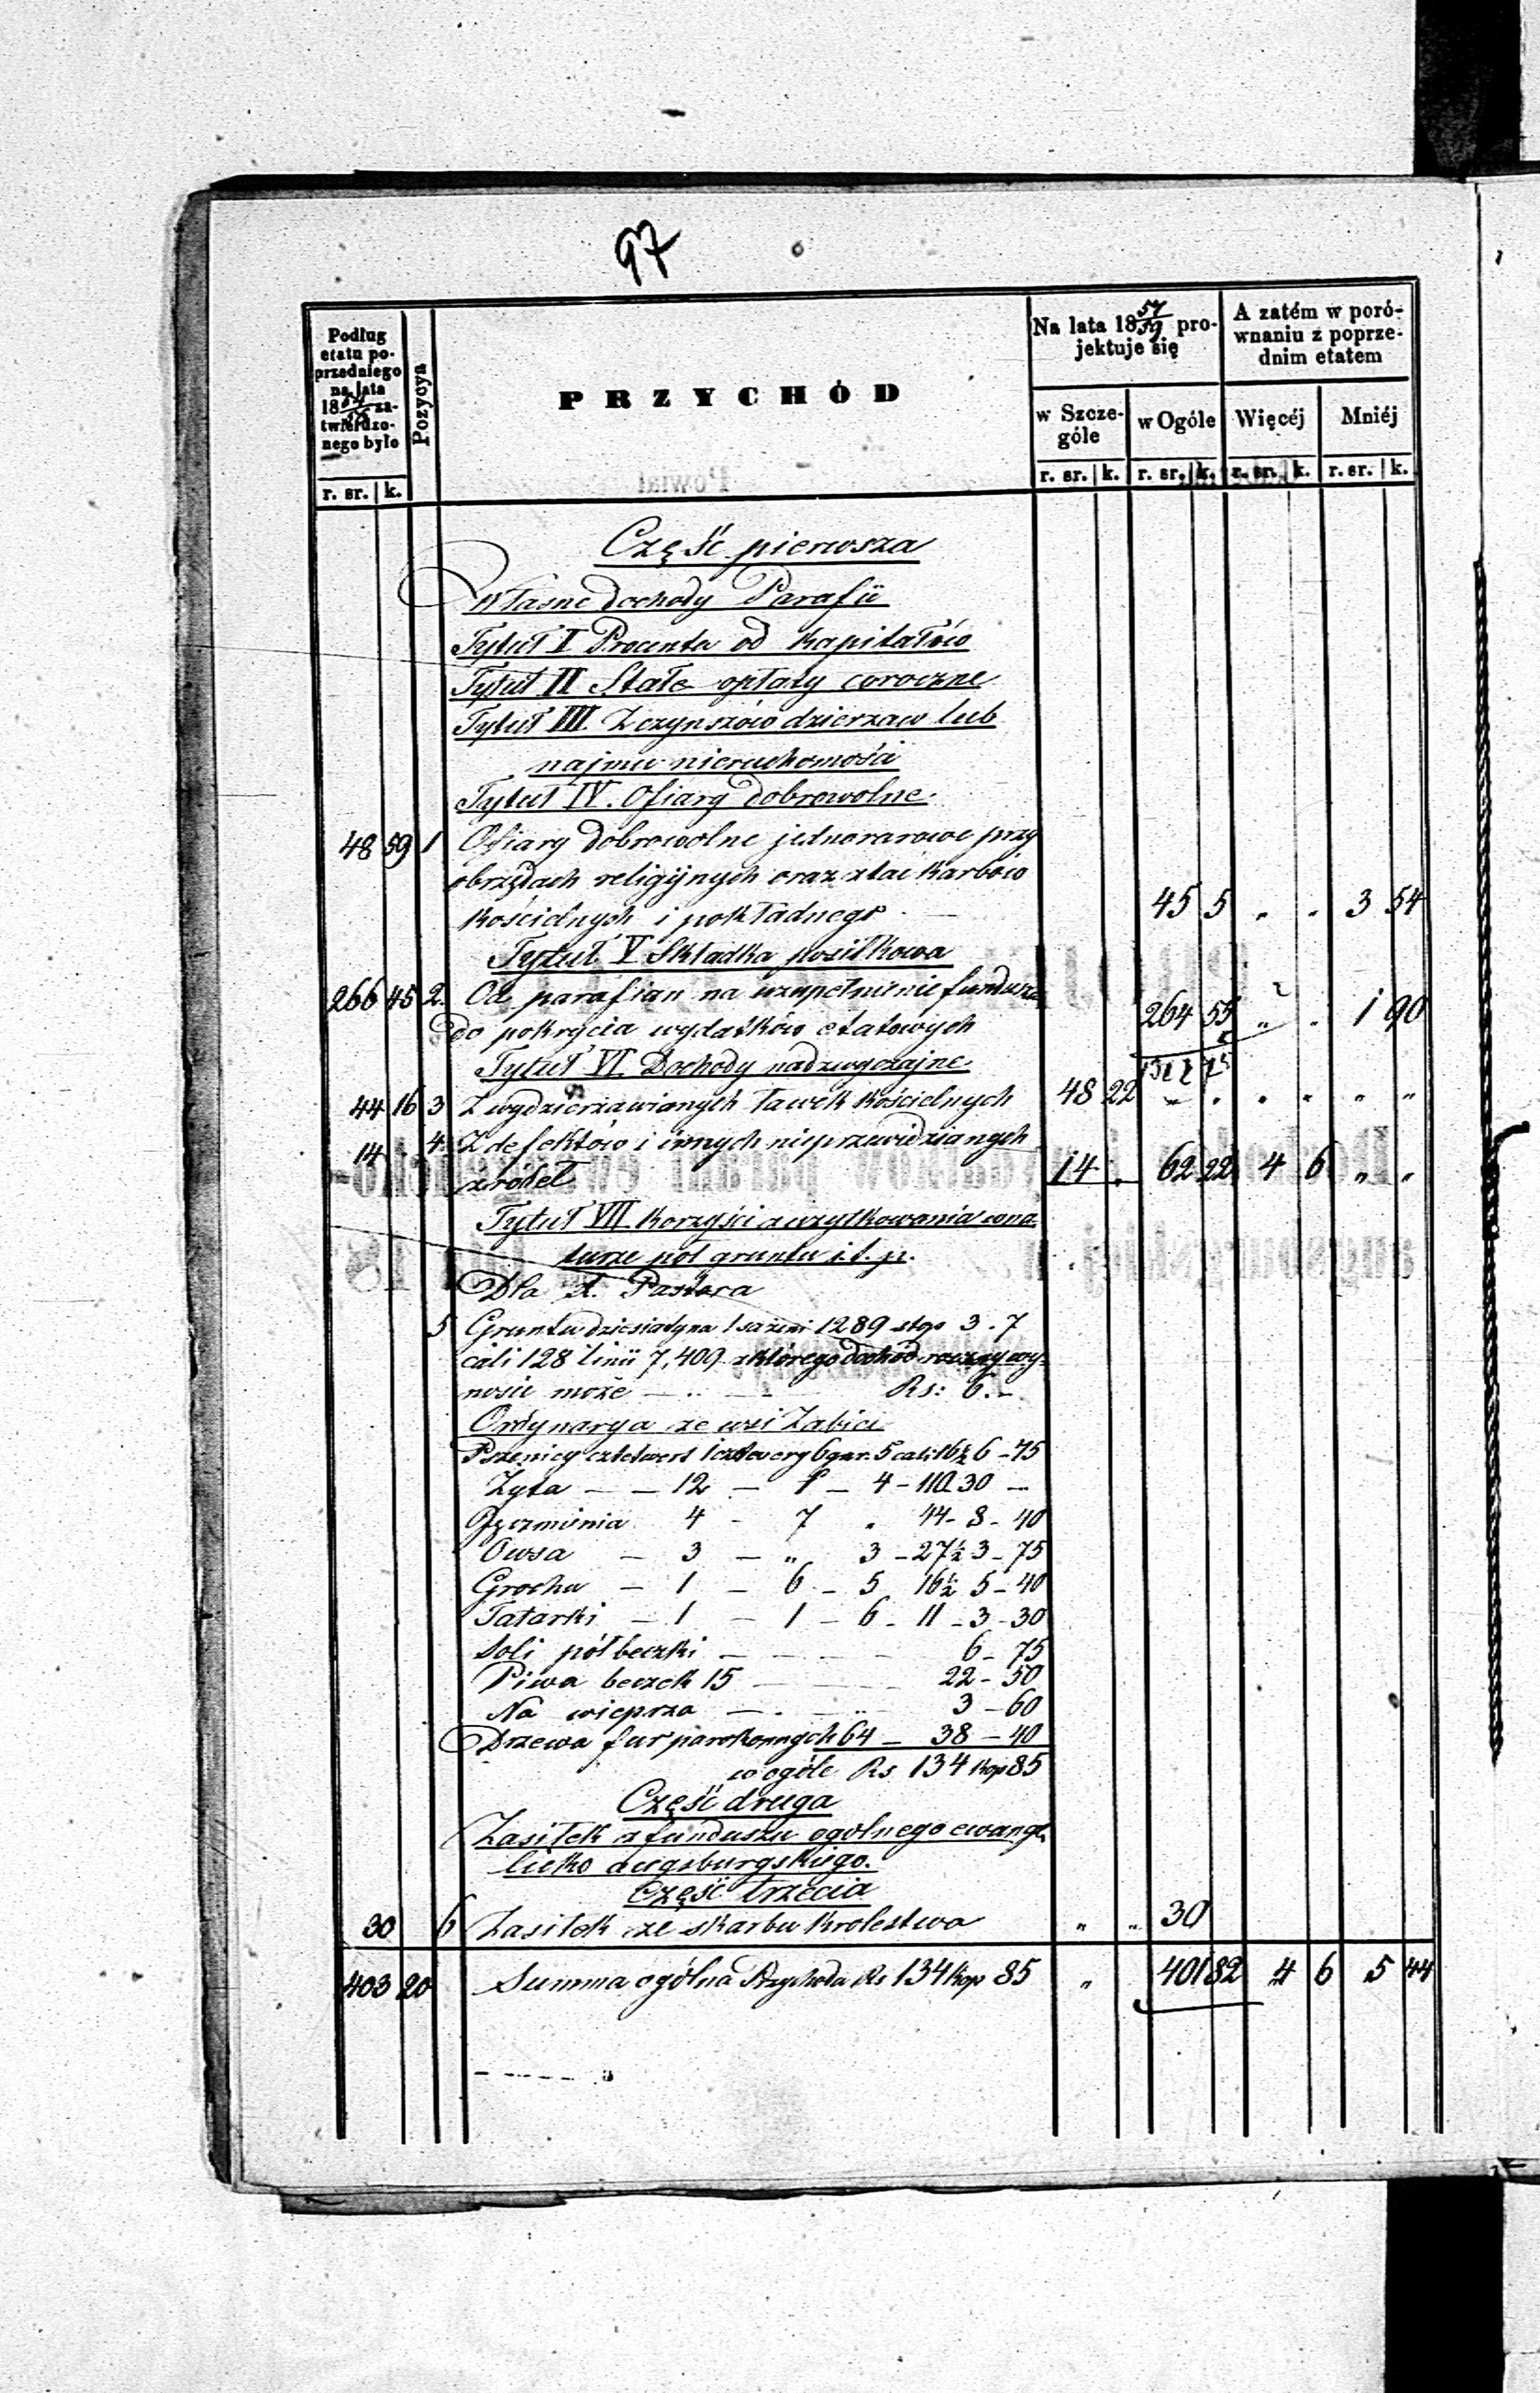 97
Podług etatu poprzedniego na lata 18 54/56 zatwierdzonego było
Pozycya
PRZYCHÓD
Na lata 18 57/59 projektuje się
A zatém w porównaniu z poprzednim etatem
w Szczególe
w Ogóle
Więcéj
Mniéj
r. sr. k.
r. sr. k. r. sr. k. r. sr. k. r. sr. k.
Część pierwsza
Własne dochody Parafii
Tytuł I Procenta od kapitałów
Tytuł II Stałe opłaty coroczne
Tytuł III. Z czynszów dzierzaw lub
najmu nieruchomości
Tytuł IV. Ofiary dobrowolne.
48 59 1 Ofiary dobrowolne jednorazowe przy
obrzędach religijnych oraz z tac i karbów
kościelnych i pokładnego 45 5 " " 3 54
Tytuł V Składka posiłkowa
266 45 2. Od parafian na uzupełnienie funduszu
do pokrycia wydatków etatowych 264 55 " " 1 90
Tytuł VI. Dochody nadzwyczajne.
44 16 3 Z wydzierzawionych ławek kościelnych 48 22 " " " " " "
14 . 4. Z defektów i innych nieprzewidzianych
zrodeł 14 . 62 22 4 6 " "
Tytuł VII. Korzyści z uzytkowania w na
turze pól gruntu i.t.p.
Dla X. Pastora
5 Gruntu dziesiatyna 1 sazeni 1289 stop 3. 7
cali 128 linii 7,409 z którego dochód roczny wy-
nosić może Rs: 6.-
Ordynarya ze wsi Zabice
Pszenicy cztetwert 1 cztwery 6 gar. 5 cali 16½ 6 - 75
Zyta - - 12 - 1 - 4 - 110 30 -
Jęczmienia 4 - 7 " 44 - 8 - 40
Owsa - 3 - " 3 - 27½ 3 - 75
Grochu - 1 - 6 - 5 16½ 5 - 40
Tatarki - 1 - 1 - 6 - 11 - 3 - 30
Soli pół beczki - - - - 6 - 75
Piwa beczek 15 - - - 22 - 50
Na wieprza - - - 3 - 60
Drzewa fur parokonnych 64 - 38 - 40
w ogóle Rs 134 kop 85
Część druga
Zasiłek z funduszu ogolnego ewange
licko augsburgskiego.
Część trzecia
30 6 Zasiłek ze skarbu krolestwa " " 30
403 20 Summa ogólna Przychodu Rs 134 kop 85 " 401 82 4 6 5 44